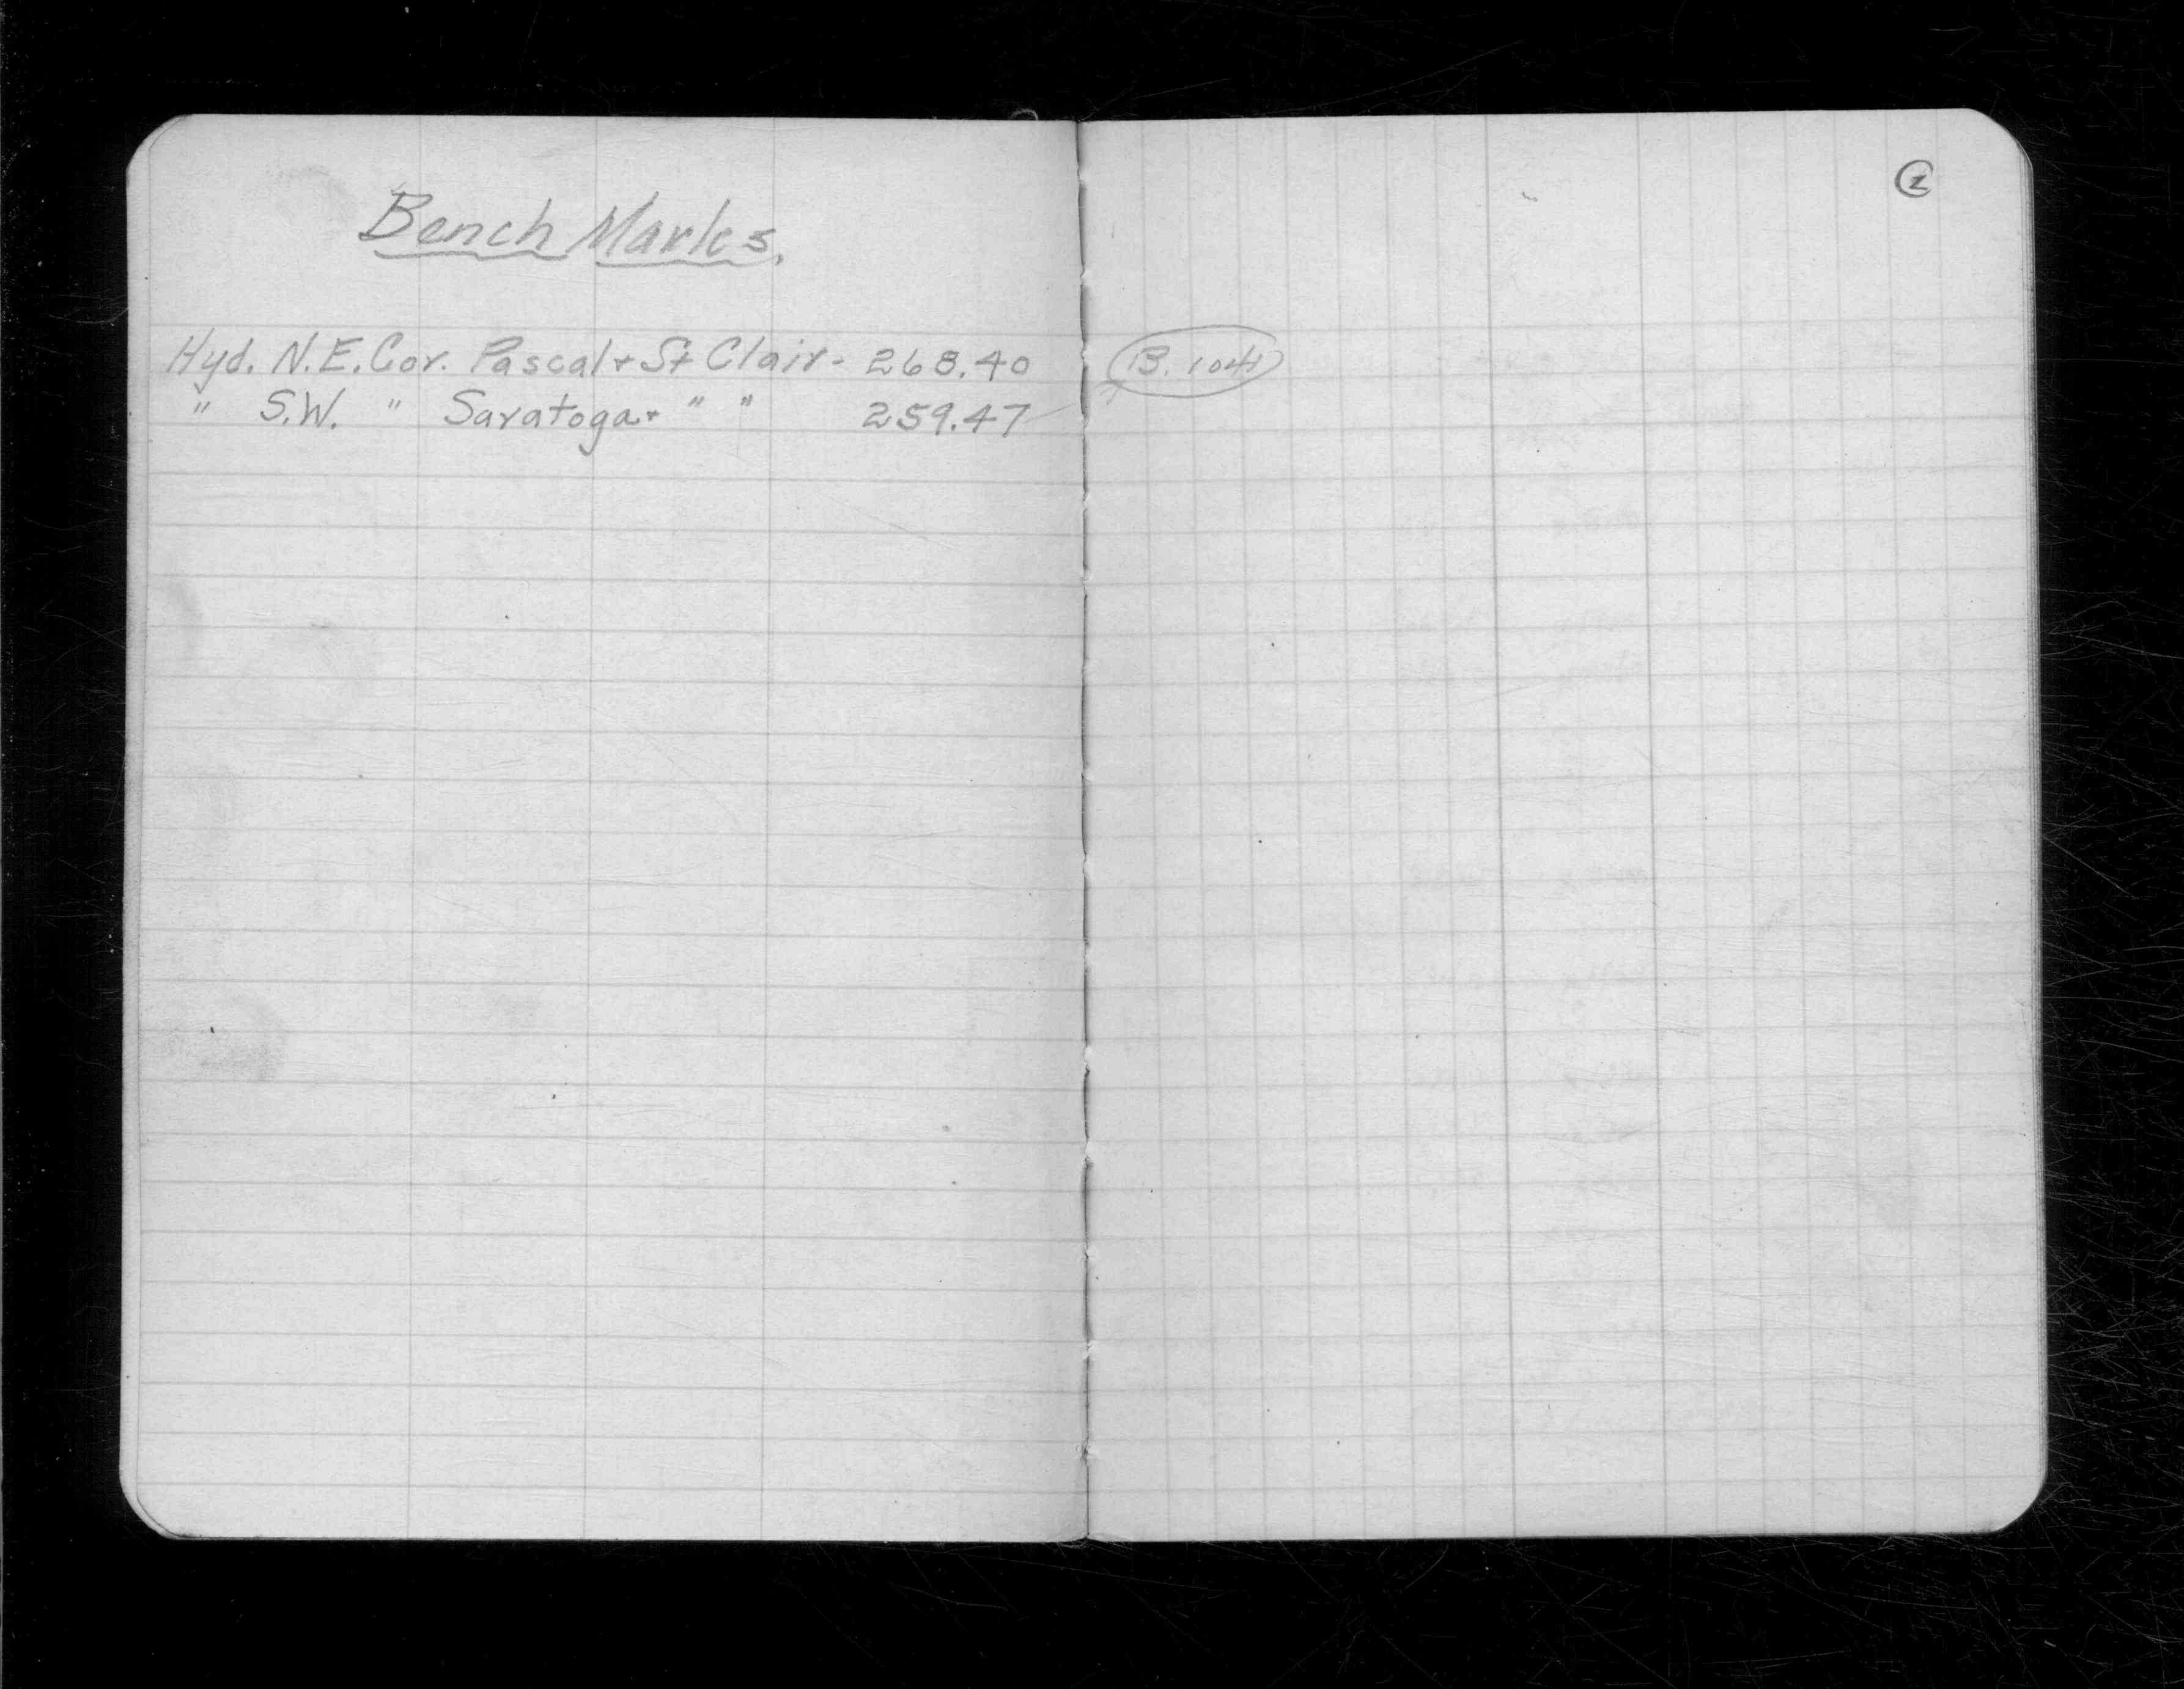 Bench Marks.
Hyd. N.E. Cor. Pascal + St Clair - 268.40
" S.W. " Saratoga + " " 259.47
B. 104